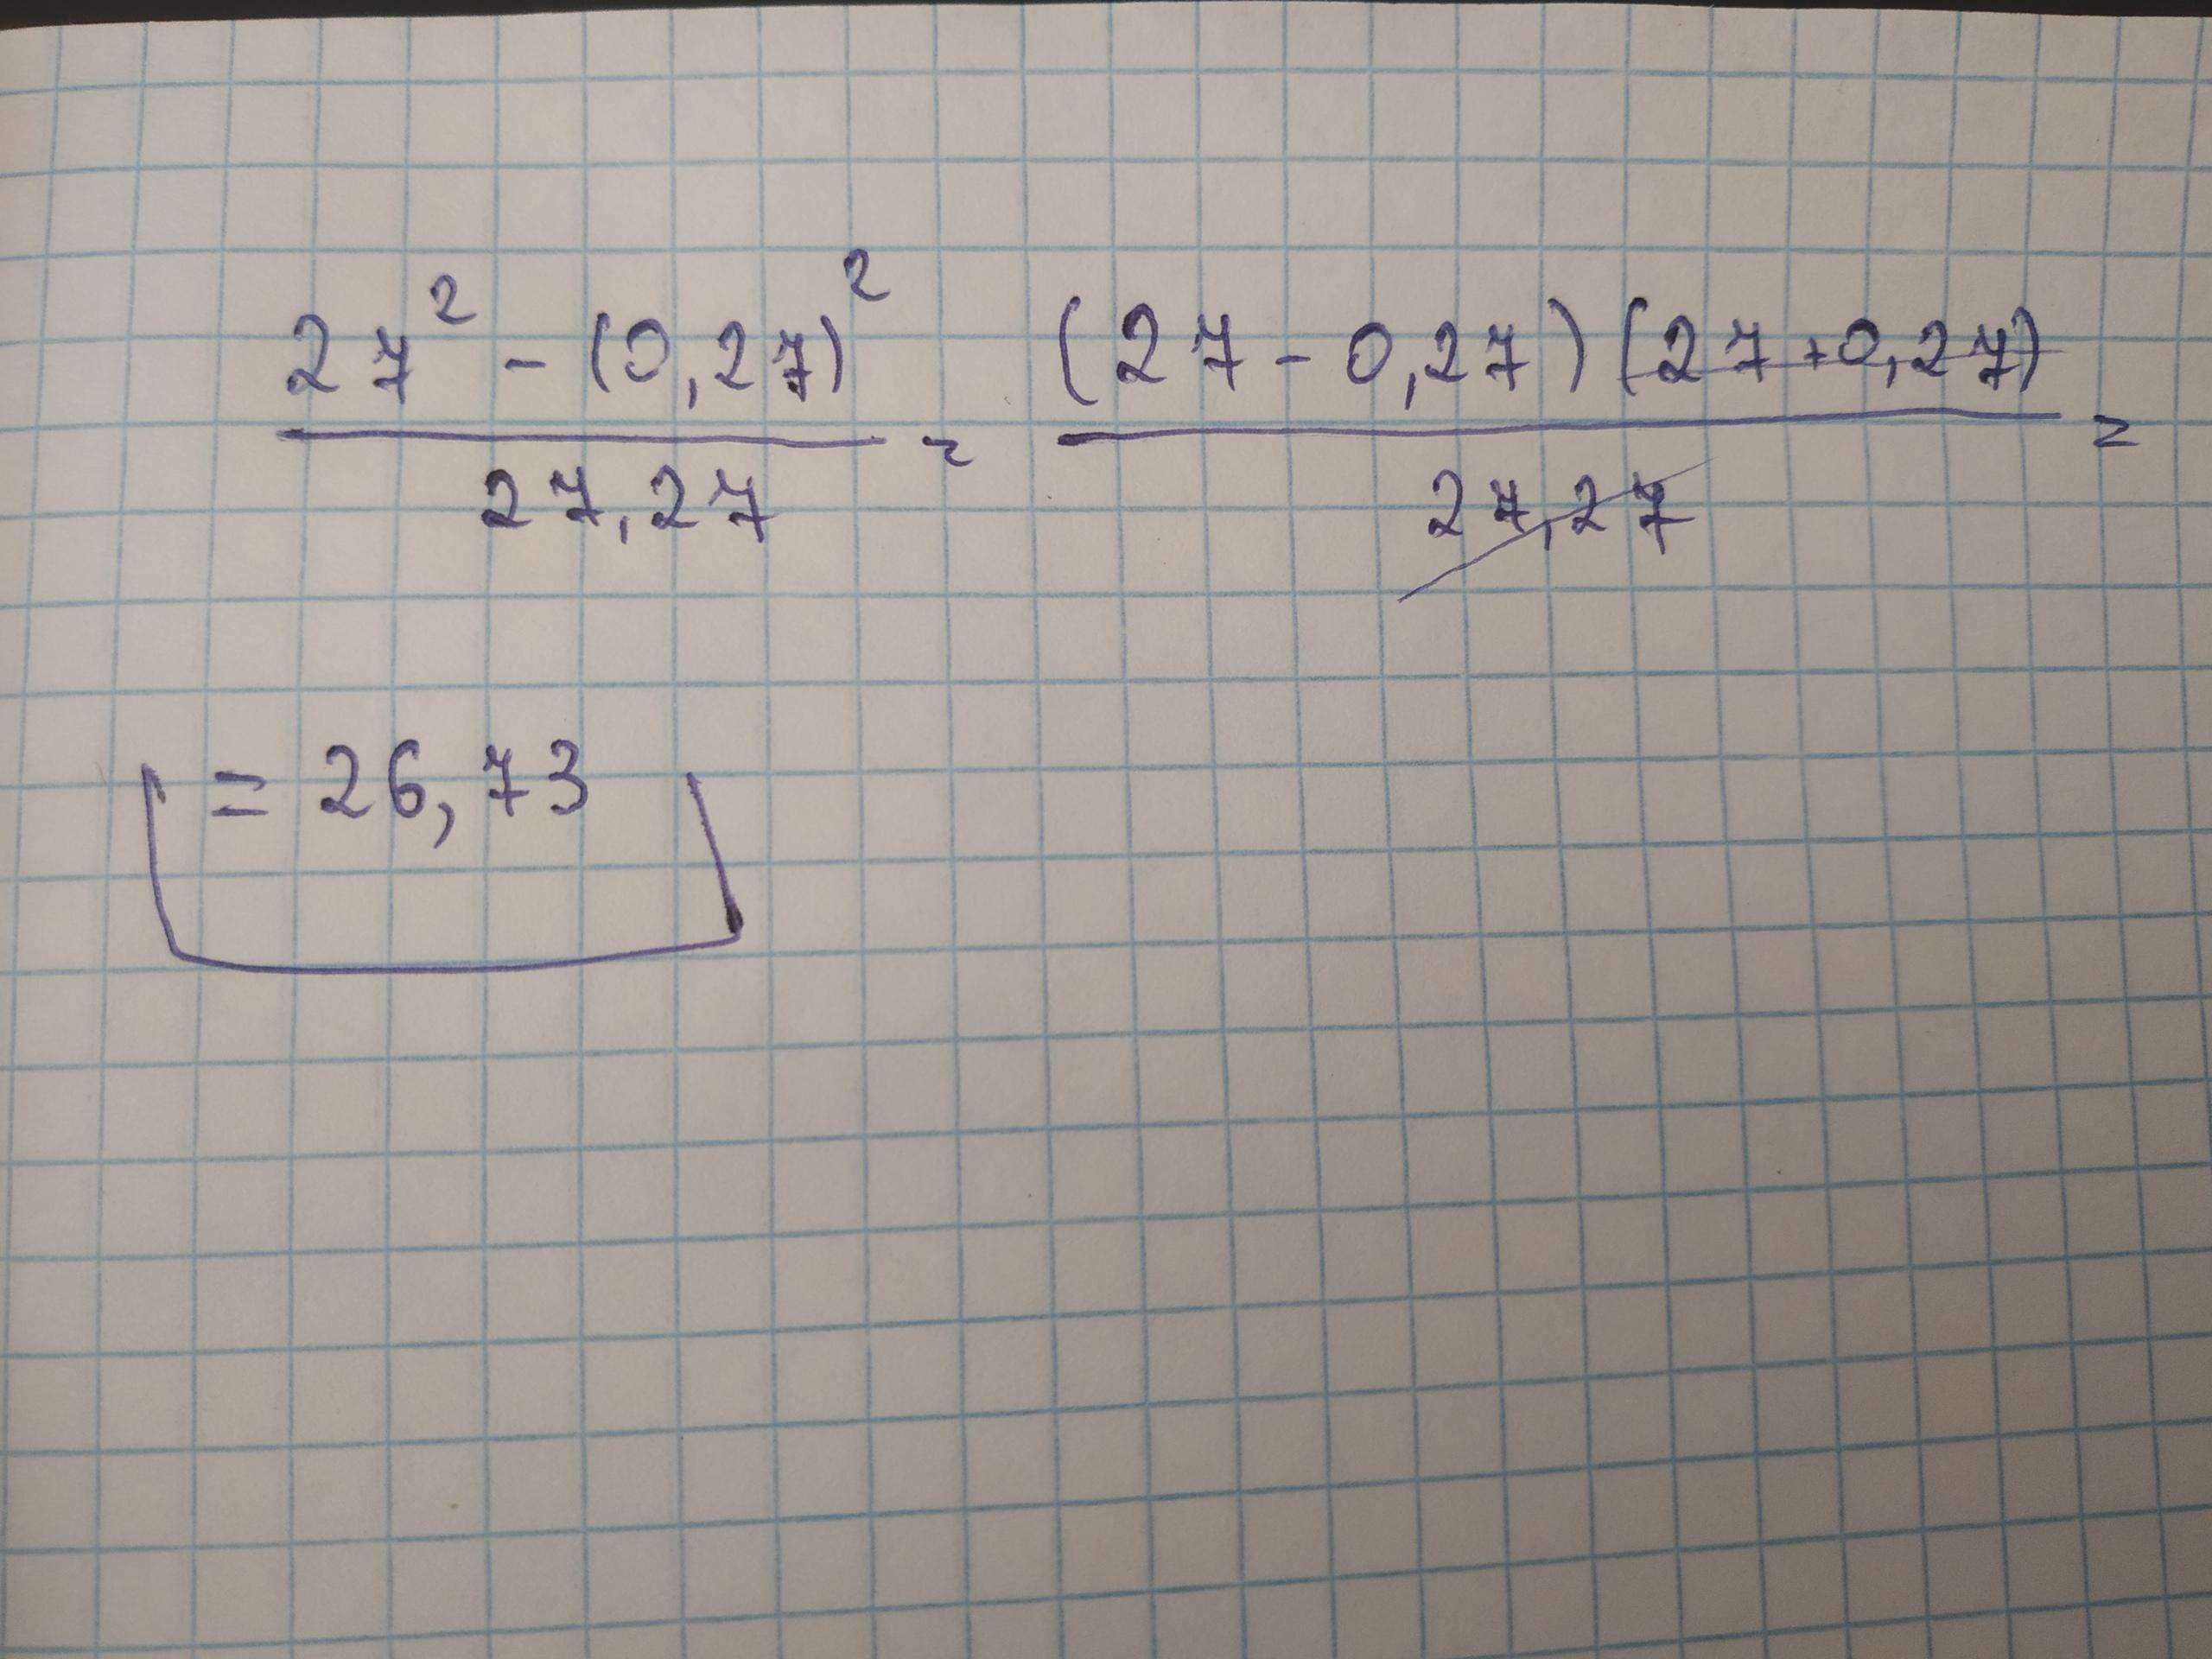 27² - (0,27)² / 27,27 = (27 - 0,27)(27 + 0,27) / 27,27 =
= 26,73